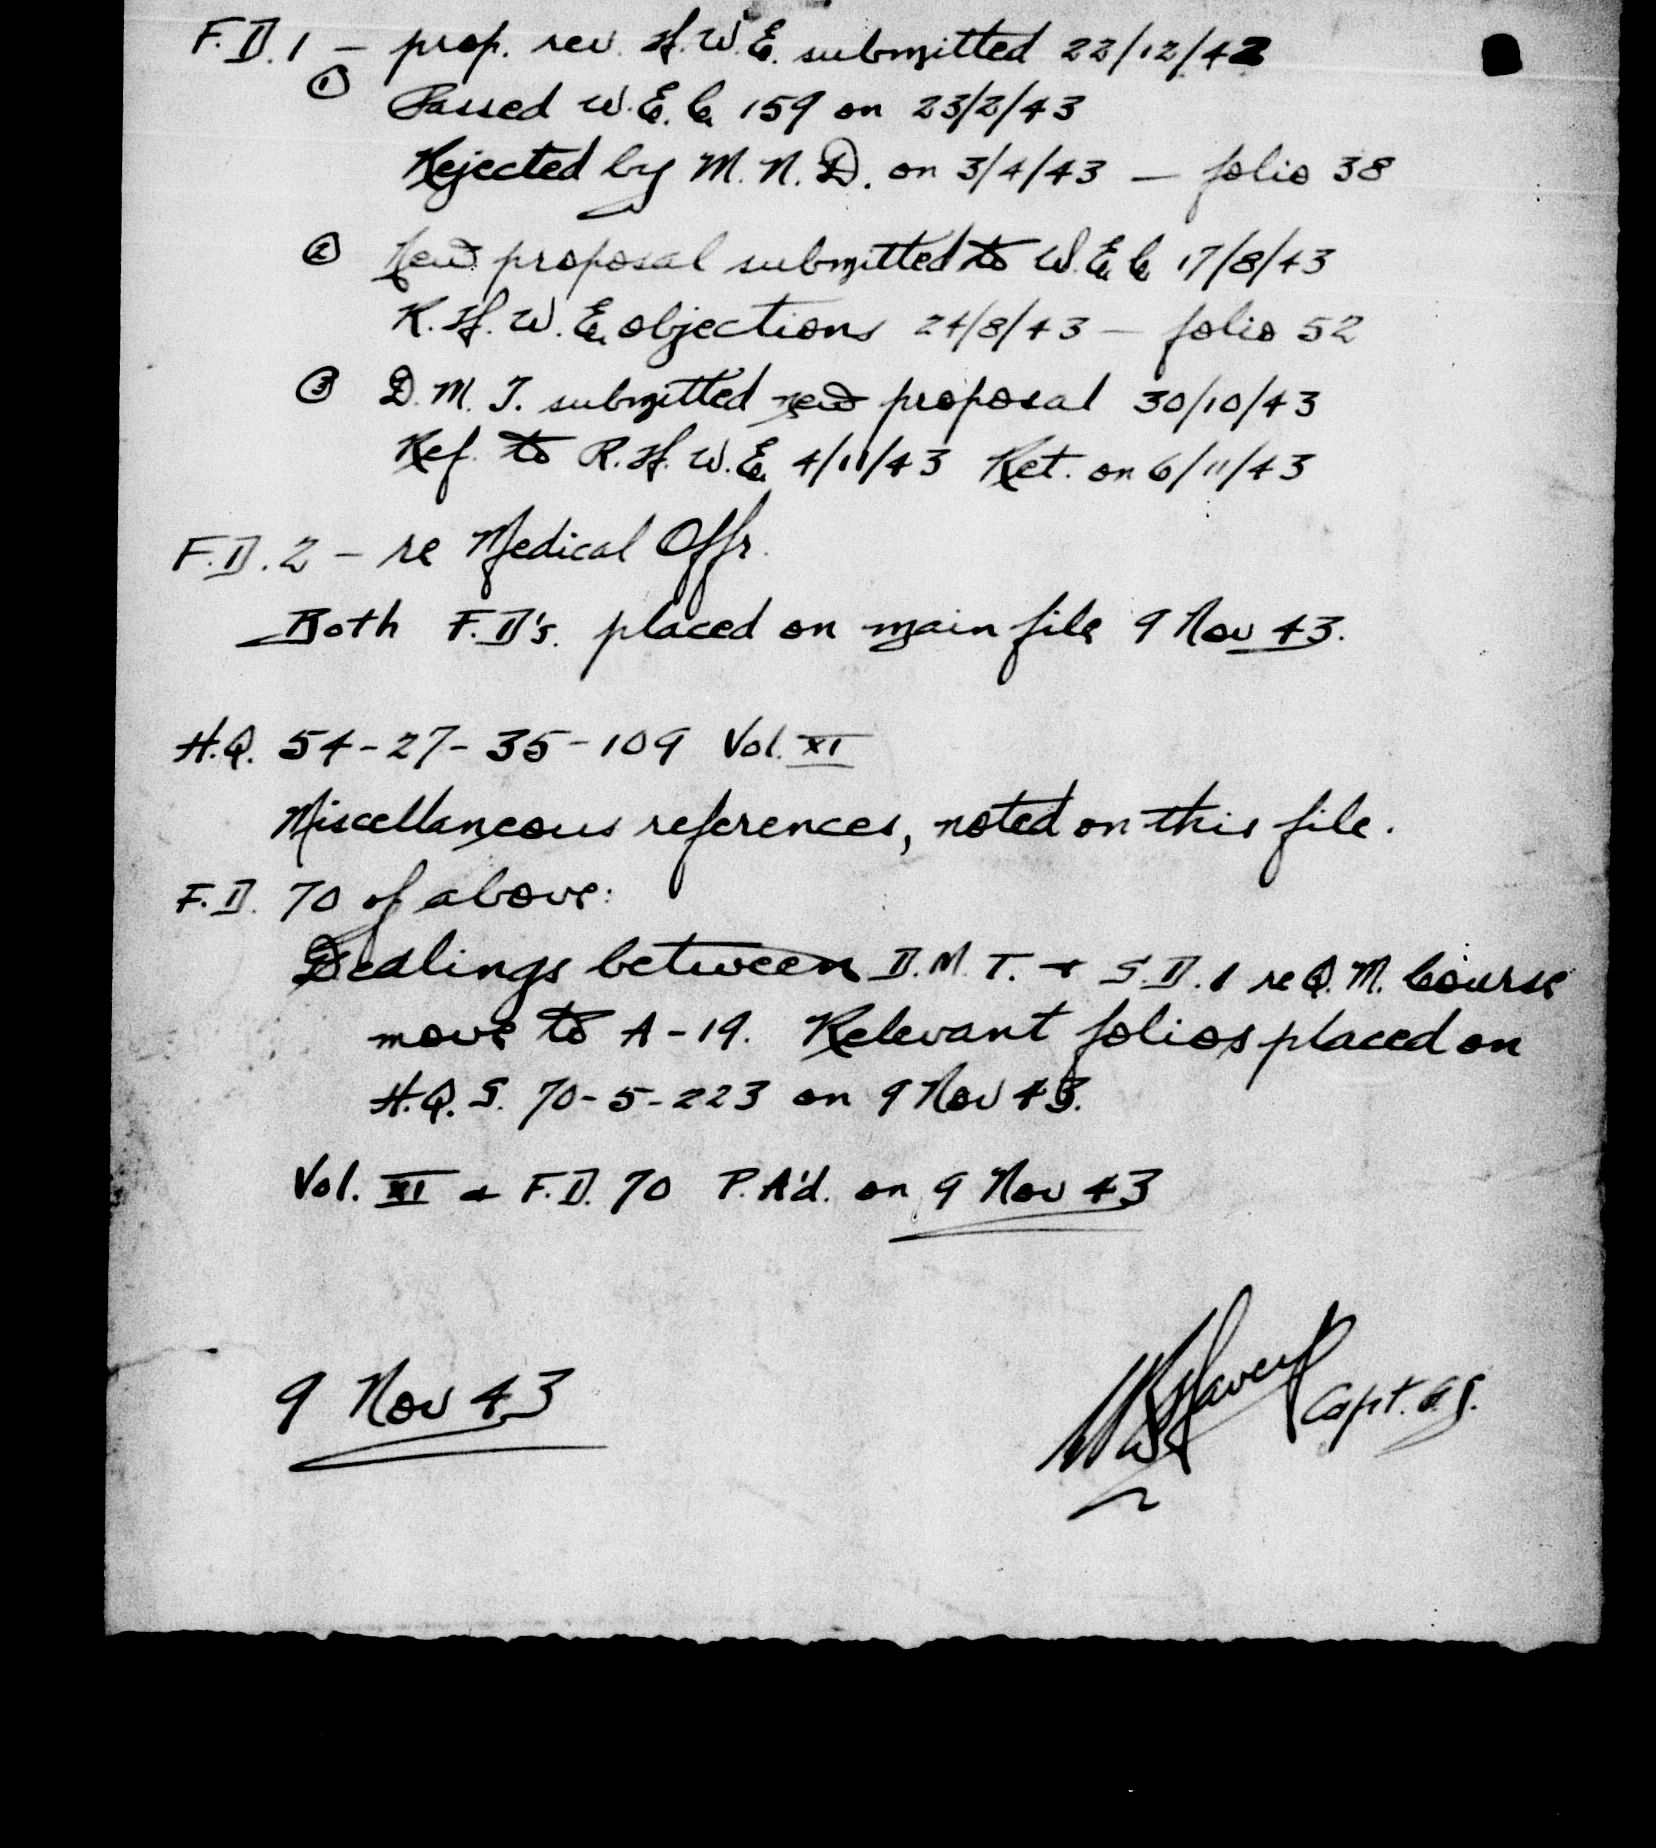 F.D. 1 – prop. rev. H.W.E. submitted 22/12/42
① Passed W.E.C. 159 on 23/2/43
Rejected by M.N.D. on 3/4/43 — folio 38
② New proposal submitted to W.E.C. 17/8/43
R.H.W.E. objections 24/8/43 — folio 52
③ D.M.T. submitted new proposal 30/10/43
Ref. to R.H.W.E. 4/11/43 Ret. on 6/11/43
F.D. 2 – re Medical Offr.
Both F.D's. placed on main file 9 Nov 43.
H.Q. 54-27-35-109 Vol. XI
Miscellaneous references, noted on this file.
F.D. 70 of above:
Dealings between D.M.T. + S.D. 1 re Q.M. Course
move to A-19. Relevant folios placed on
H.Q.S. 70-5-223 on 9 Nov 43.
Vol. XI + F.D. 70 P.A'd. on 9 Nov 43
9 Nov 43
Capt. GS.